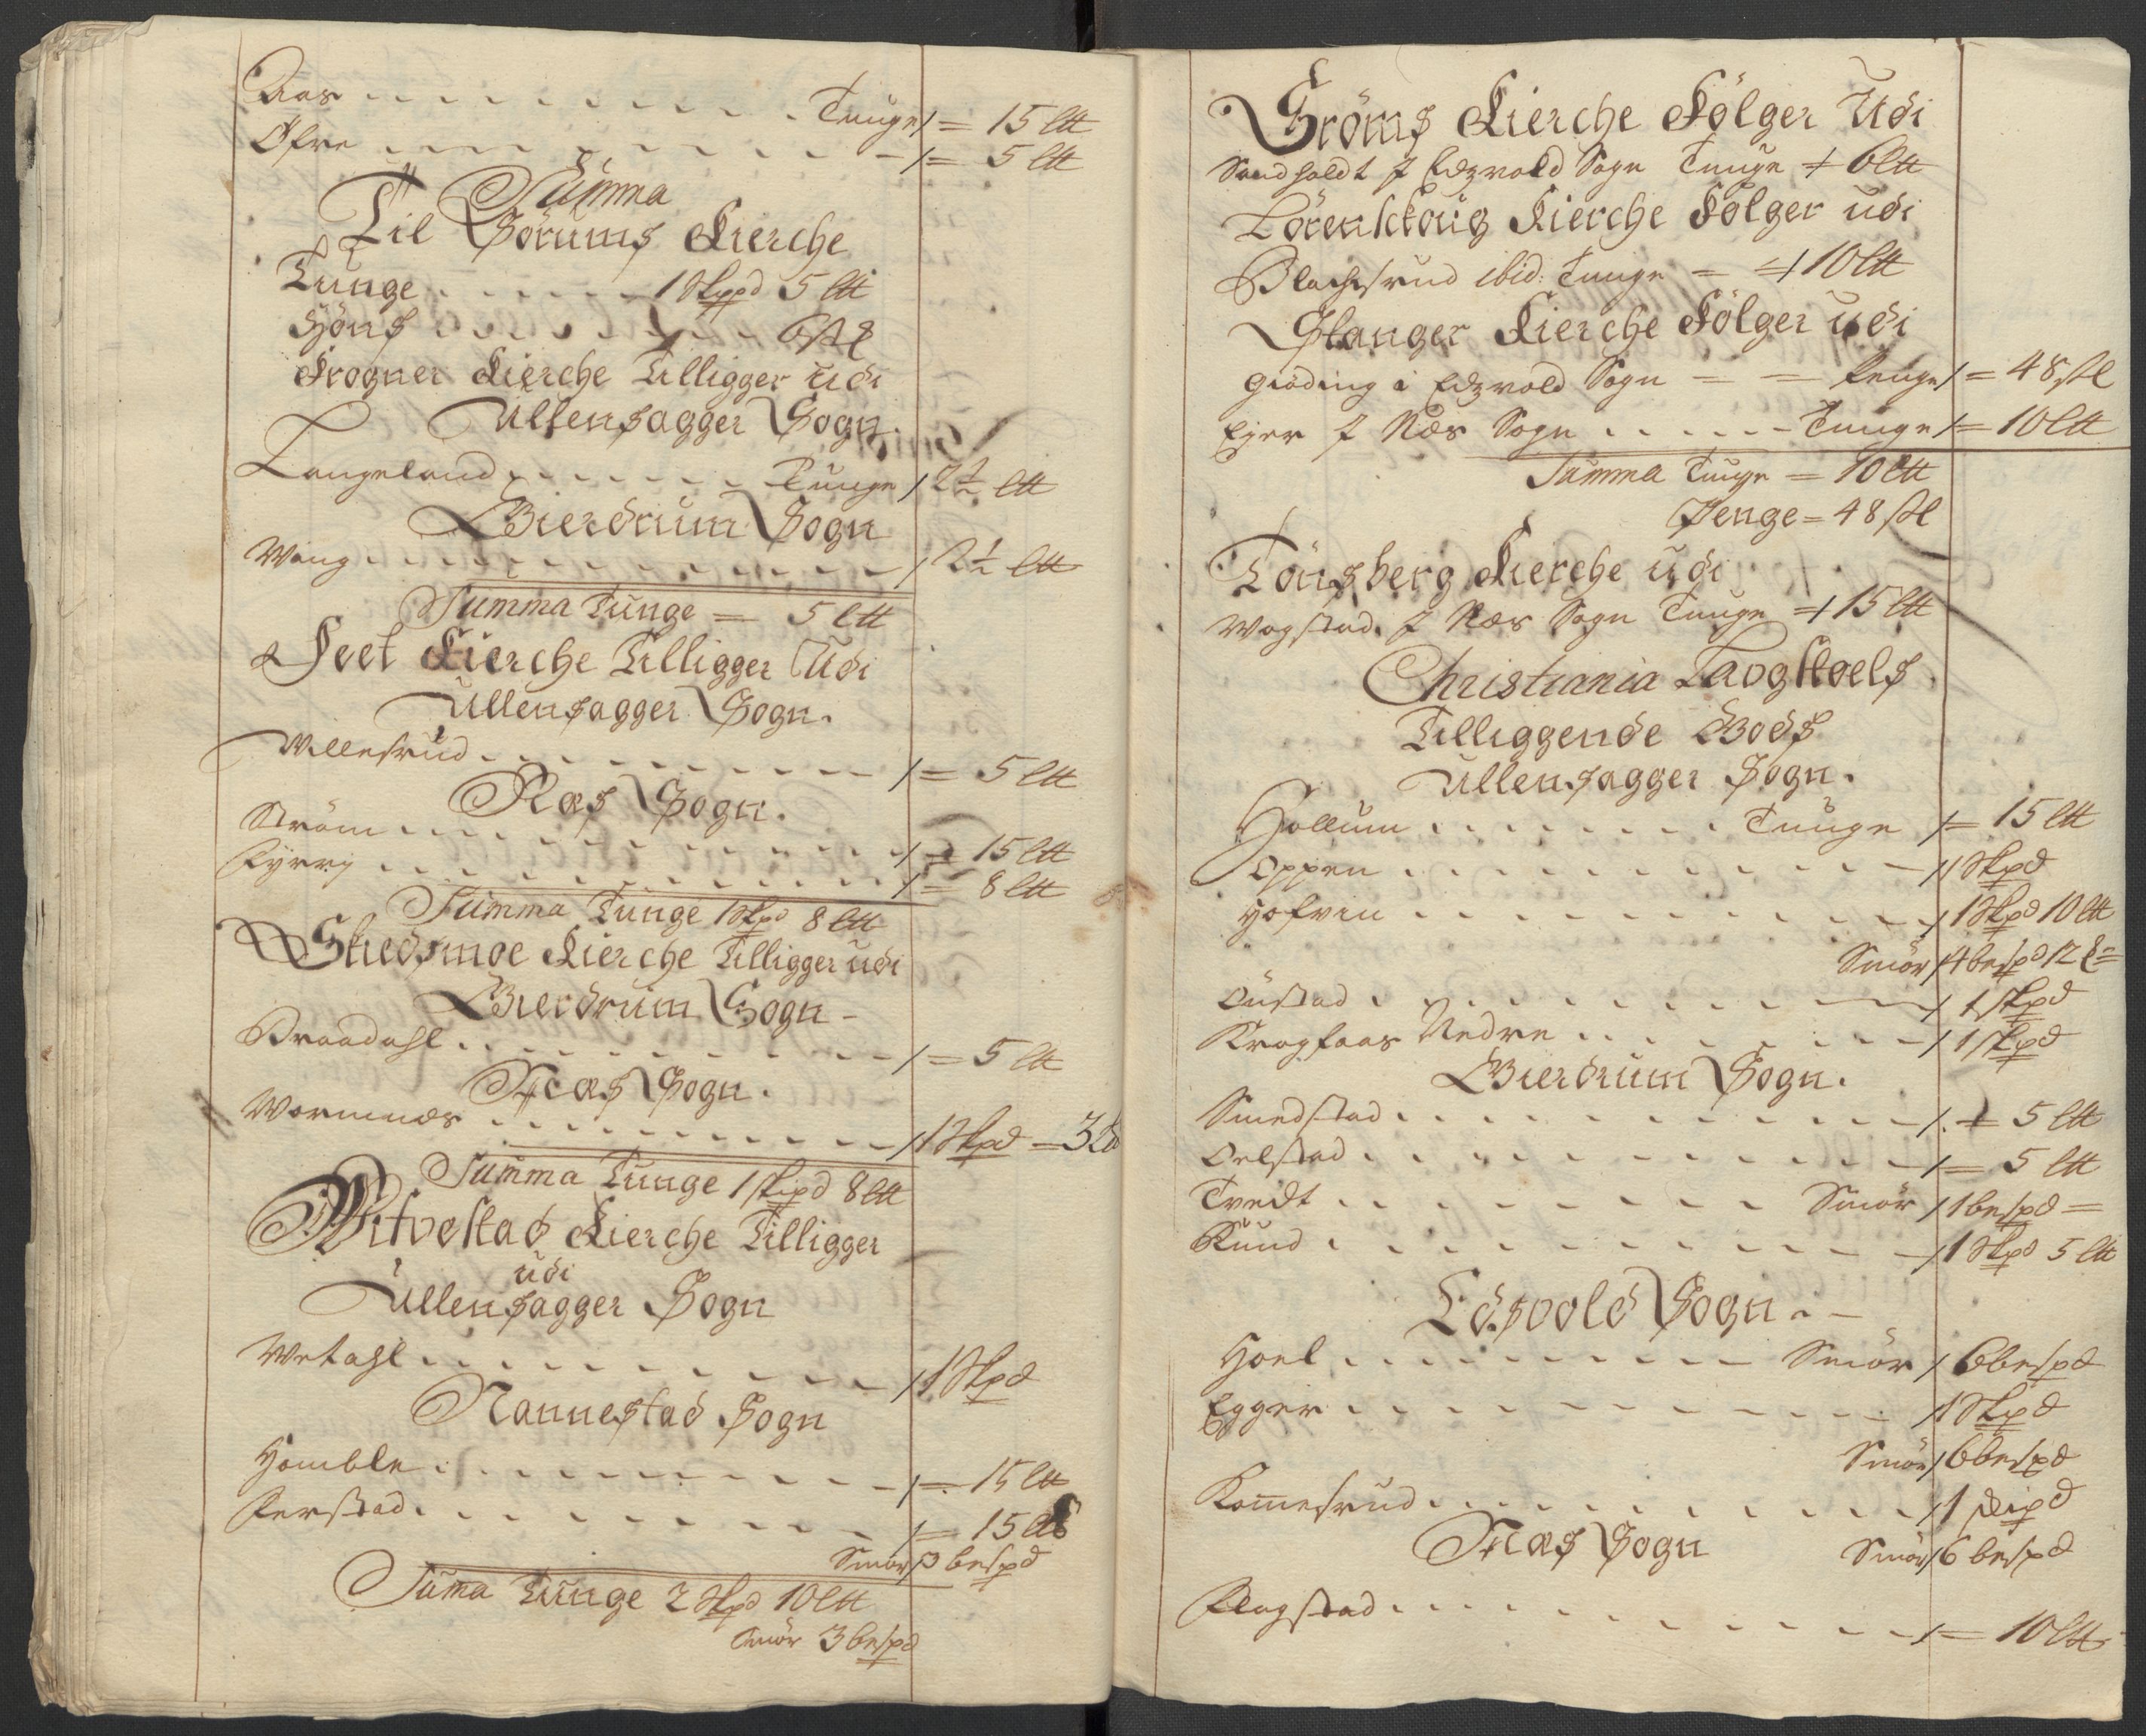 Aas . . . . . . . . . . Tunge / = 15 Ltt
Øfre . . . . . . . . . . / = 5 Ltt
Summa
Til Sörums Kierche
Tunge . . . . . . 1 Skppd 5 Ltt
Höns . . . . . . 6 st
Frogner Kierche Tilligger udi
Ullensagger Sogn.
Langeland . . . . . . Tunge / 2½ Ltt
Gierdrum Sogn
Wang . . . . . . . . . . / 2½ Ltt
Summa Tunge = 5 Ltt
Feet Kierche Tilligger Udi
Ullensagger Sogn.
Willesrud . . . . . . . . . . / = 5 Ltt
Næs Sogn.
Ström . . . . . . . . . . / = 15 Ltt
Fyrri . . . . . . . . . . / = 8 Ltt
Summa Tunge 1 Skpd 8 Ltt
Skedsmoe Kierche Tilligger udi
Gierdrum Sogn -
Braadahl . . . . . . . . . . / = 5 Ltt
Næs Sogn.
Wormnæs . . . . . . . . . . / 1 Skpd = 3 Lb
Summa Tunge 1 Skipd 8 Ltt
Hvitvestad Kierche Tilligger
udi
Ullensagger Sogn
Wetahl . . . . . . . . . . / 1 Skpd
Nannestad Sogn
Homble . . . . . . . . . . / = 15 Ltt
Ferstad . . . . . . . . . . / = 15 Ltt
Smör / 3 bespd
Suma Tunge 2 Skpd 10 Ltt
Smör 3 bespd
Ströms Kierche Fölger Udi
Sandholdt I Edzvold Sogn Tunge / = 6 Ltt
Lörenskoug Kierche Fölger udi
Blachsrud ibid: Tunge = / = 10 Ltt
Stanger Kierche Fölger udi
Giöding i Edzvold Sogn = = Penge / = 48 st
Ejer I Næs Sogn . . . . . Tunge / = 10 Ltt
Summa Tunge = 10 Ltt
Penge = 48 st
Tönsberg Kierche udi
Wogstad I Næs Sogn Tunge / = 15 Ltt
Christiania Laogstoels
Tilliggende Gods
Ullensagger Sogn.
Hollum . . . . . . . . Tunge / = 15 Ltt
Oppen . . . . . . . . . . / 1 Skpd
Hofvin . . . . . . . . . . / 1 Skpd 10 Ltt
Smör / 4 bespd 12
Oustad . . . . . . . . . . / 1 skpd
Krogfaas Nedre . . . . . . . / 1 skpd
Gierdrum Sogn.
Smedstad . . . . . . . . . . / = 5 Ltt
Oelstad . . . . . . . . . . / = 5 Ltt
Tvedt . . . . . . . . Smör / 1 bespd =
Kund . . . . . . . . . . / 1 Skpd 5 Ltt
Edsvold Sogn . -
Hoel . . . . . . . . . . Smör / 6 bespd
Egger . . . . . . . . . . / 1 Skpd
Smör / 6 bespd
Komesrud . . . . . . . . . . / 1 skipd
Næs Sogn Smör / 6 bespd
Flogstad . . . . . . . . . . / = 10 Ltt